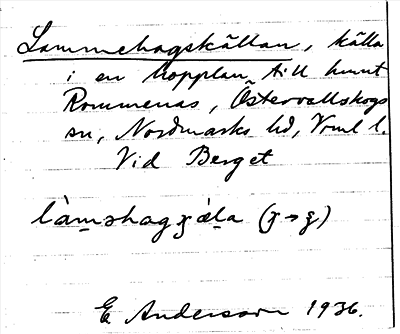 Lammehagskällan, källa
i en hopplan till hmnt
Rommenäs, Östervallskogs
sn, Nordmarks hd, Vrml l.
Vid Berget
làm̱əhagꭓæ̀ḻa (ꭓ→ʓ)
E Andersson 1936.